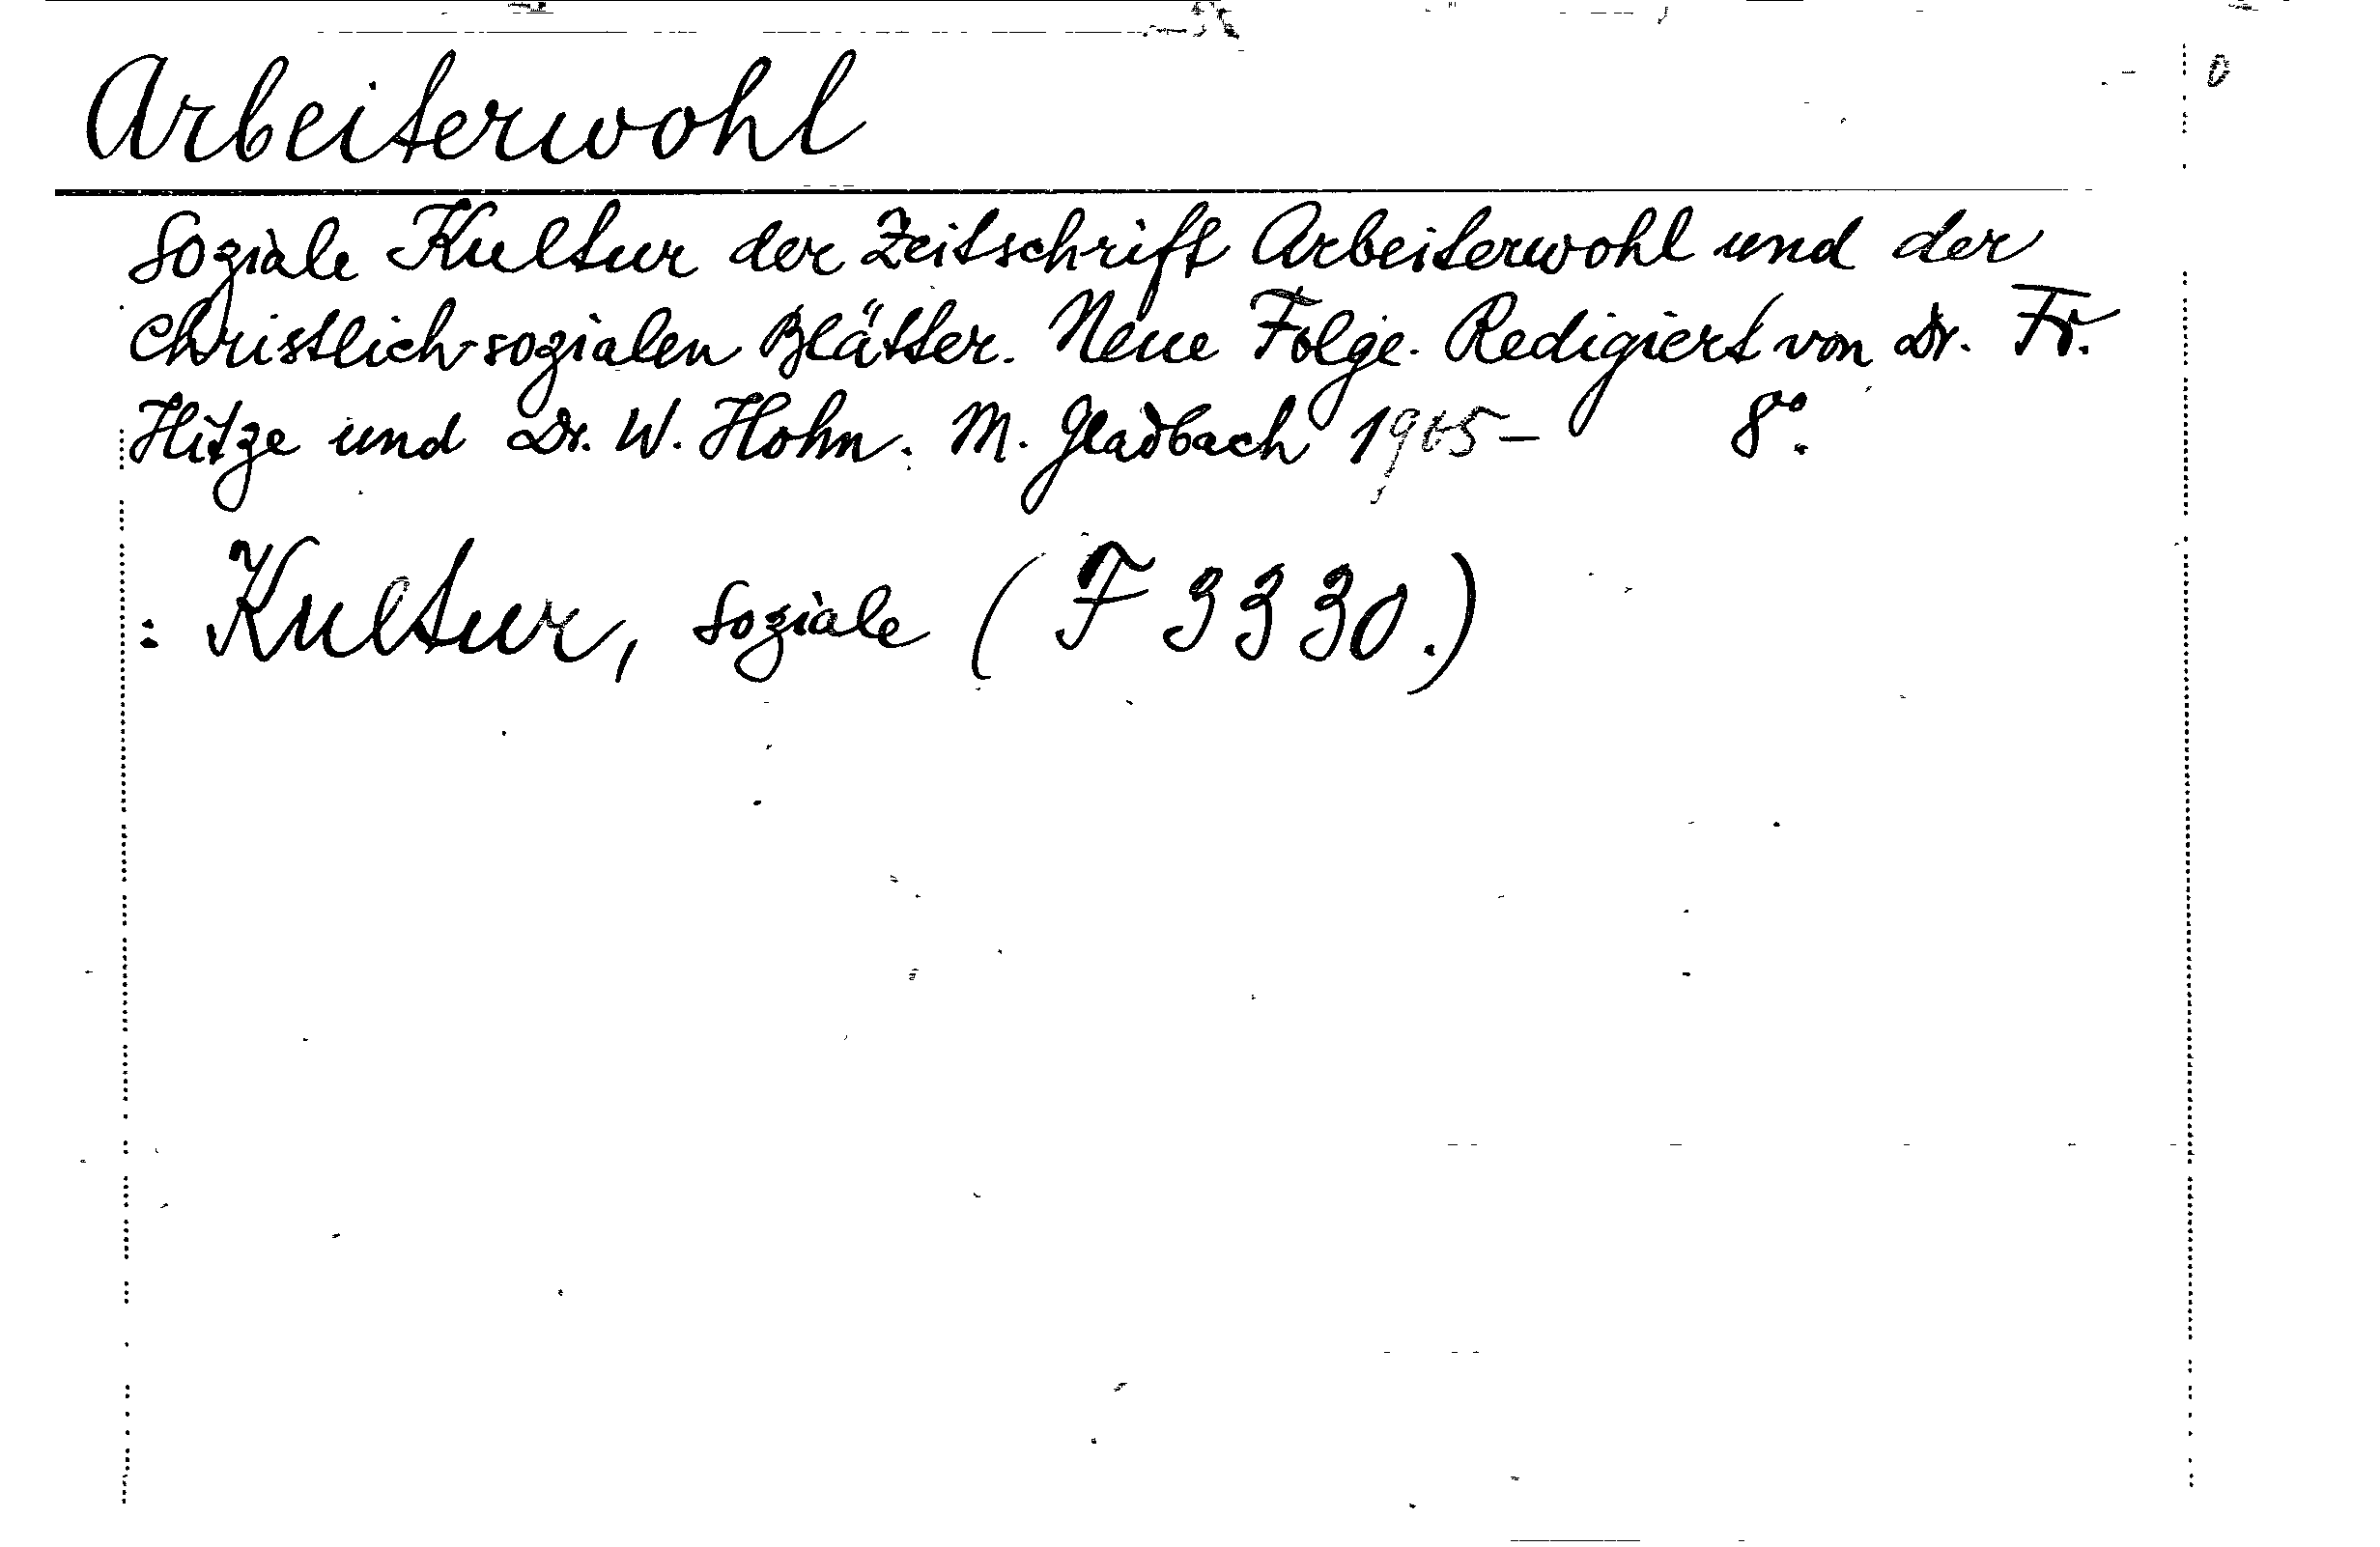 Arbeiterwohl
Soziale Kultur der Zeitschrift Arbeiterwohl und der
Christlich-sozialen Blätter. Neue Folge. Redigiert von Dr. Fr.
Hitze und Dr. W. Hohn. M. Gladbach 1905- 8º.
: Kultur, Soziale (F 3330.)